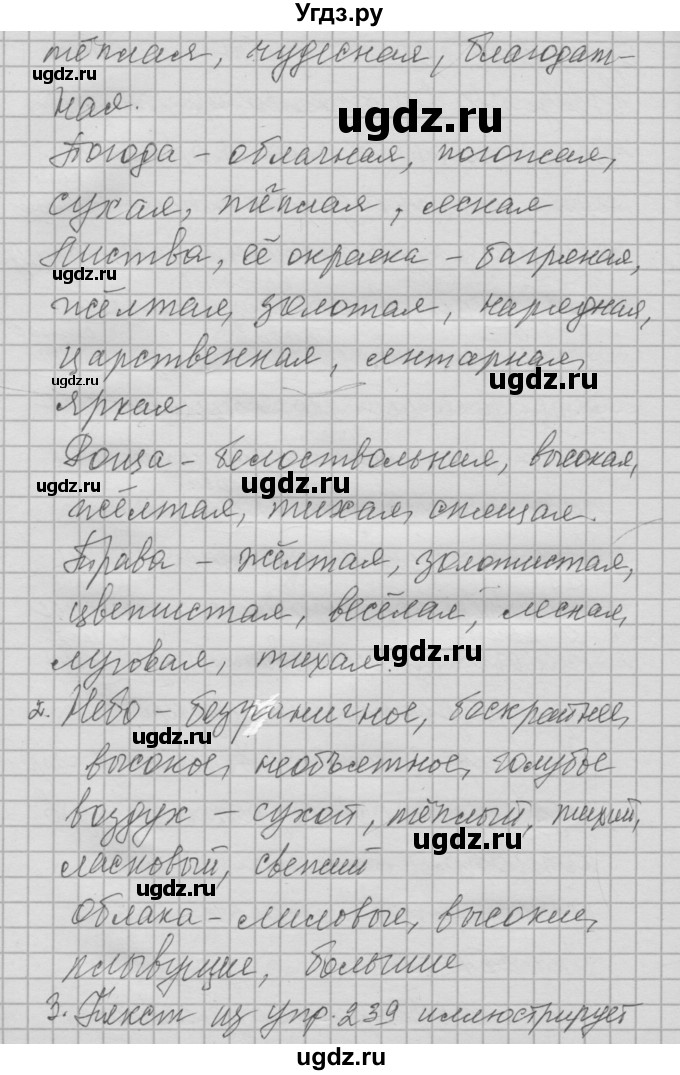 Угдз.ру
тёплая, чудесная, благодат-
ная.
Погода - облачная, погожая,
сухая, тёплая, ясная
Листва, её окраска - багряная,
жёлтая, золотая, нарядная,
царственная, янтарная,
яркая
Роща - белоствольная, высокая,
жёлтая, тихая, спящая.
Трава - жёлтая, золотистая,
цветистая, весёлая, лесная,
луговая, тихая.
2. Небо - безграничное, бескрайнее,
высокое, необъятное, голубое
воздух - сухой, тёплый, тихий,
ласковый, свежий
Облака - лиловые, высокие,
плывущие, большие
3. Текст из упр. 239 иллюстрирует
ugdz.ru